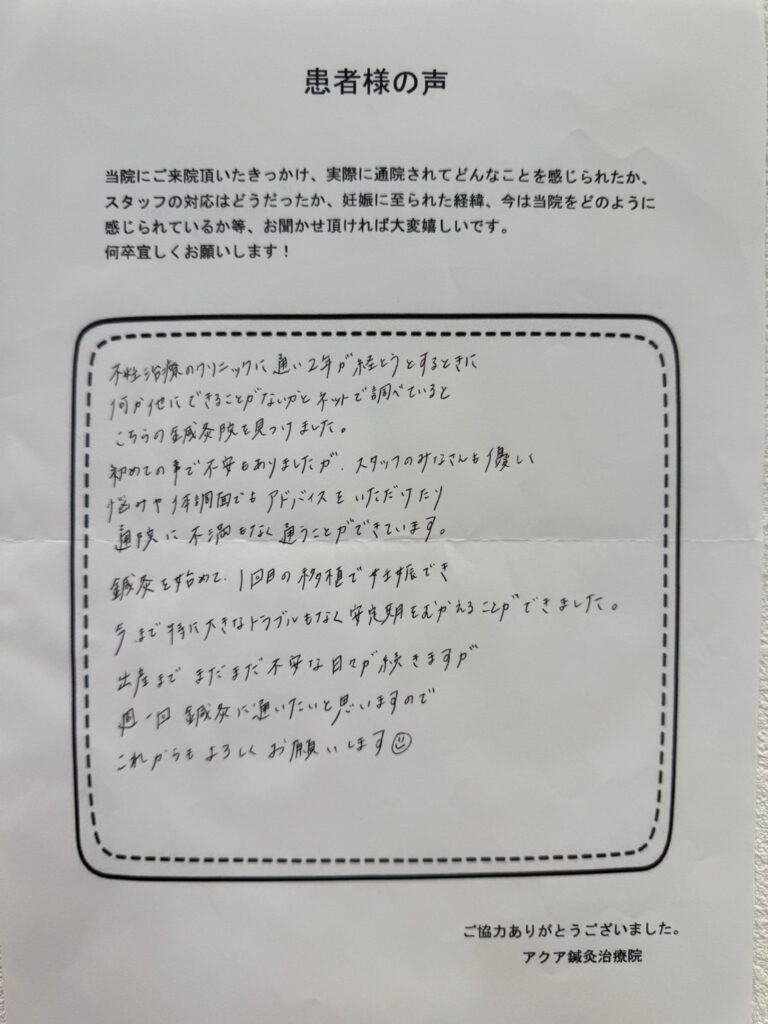 患者様の声
当院にご来院頂いたきっかけ、実際に通院されてどんなことを感じられたか、
スタッフの対応はどうだったか、妊娠に至られた経緯、今は当院をどのように
感じられているか等、お聞かせ頂ければ大変嬉しいです。
何卒宜しくお願いします！
不妊治療のクリニックに通い2年が経とうとするときに
何か他にできることがないかとネットで調べていると
こちらの鍼灸院を見つけました。
初めての事で不安もありましたが、スタッフのみなさんも優しく
悩みや体調面でもアドバイスをいただけたり
通院に不満もなく通うことができています。
鍼灸を始めて、1回目の移植で妊娠でき
今まで特に大きなトラブルもなく安定期をむかえることができました。
出産までまだまだ不安な日々が続きますが
週一回鍼灸に通いたいと思いますので
これからもよろしくお願いします☺
ご協力ありがとうございました。
アクア鍼灸治療院